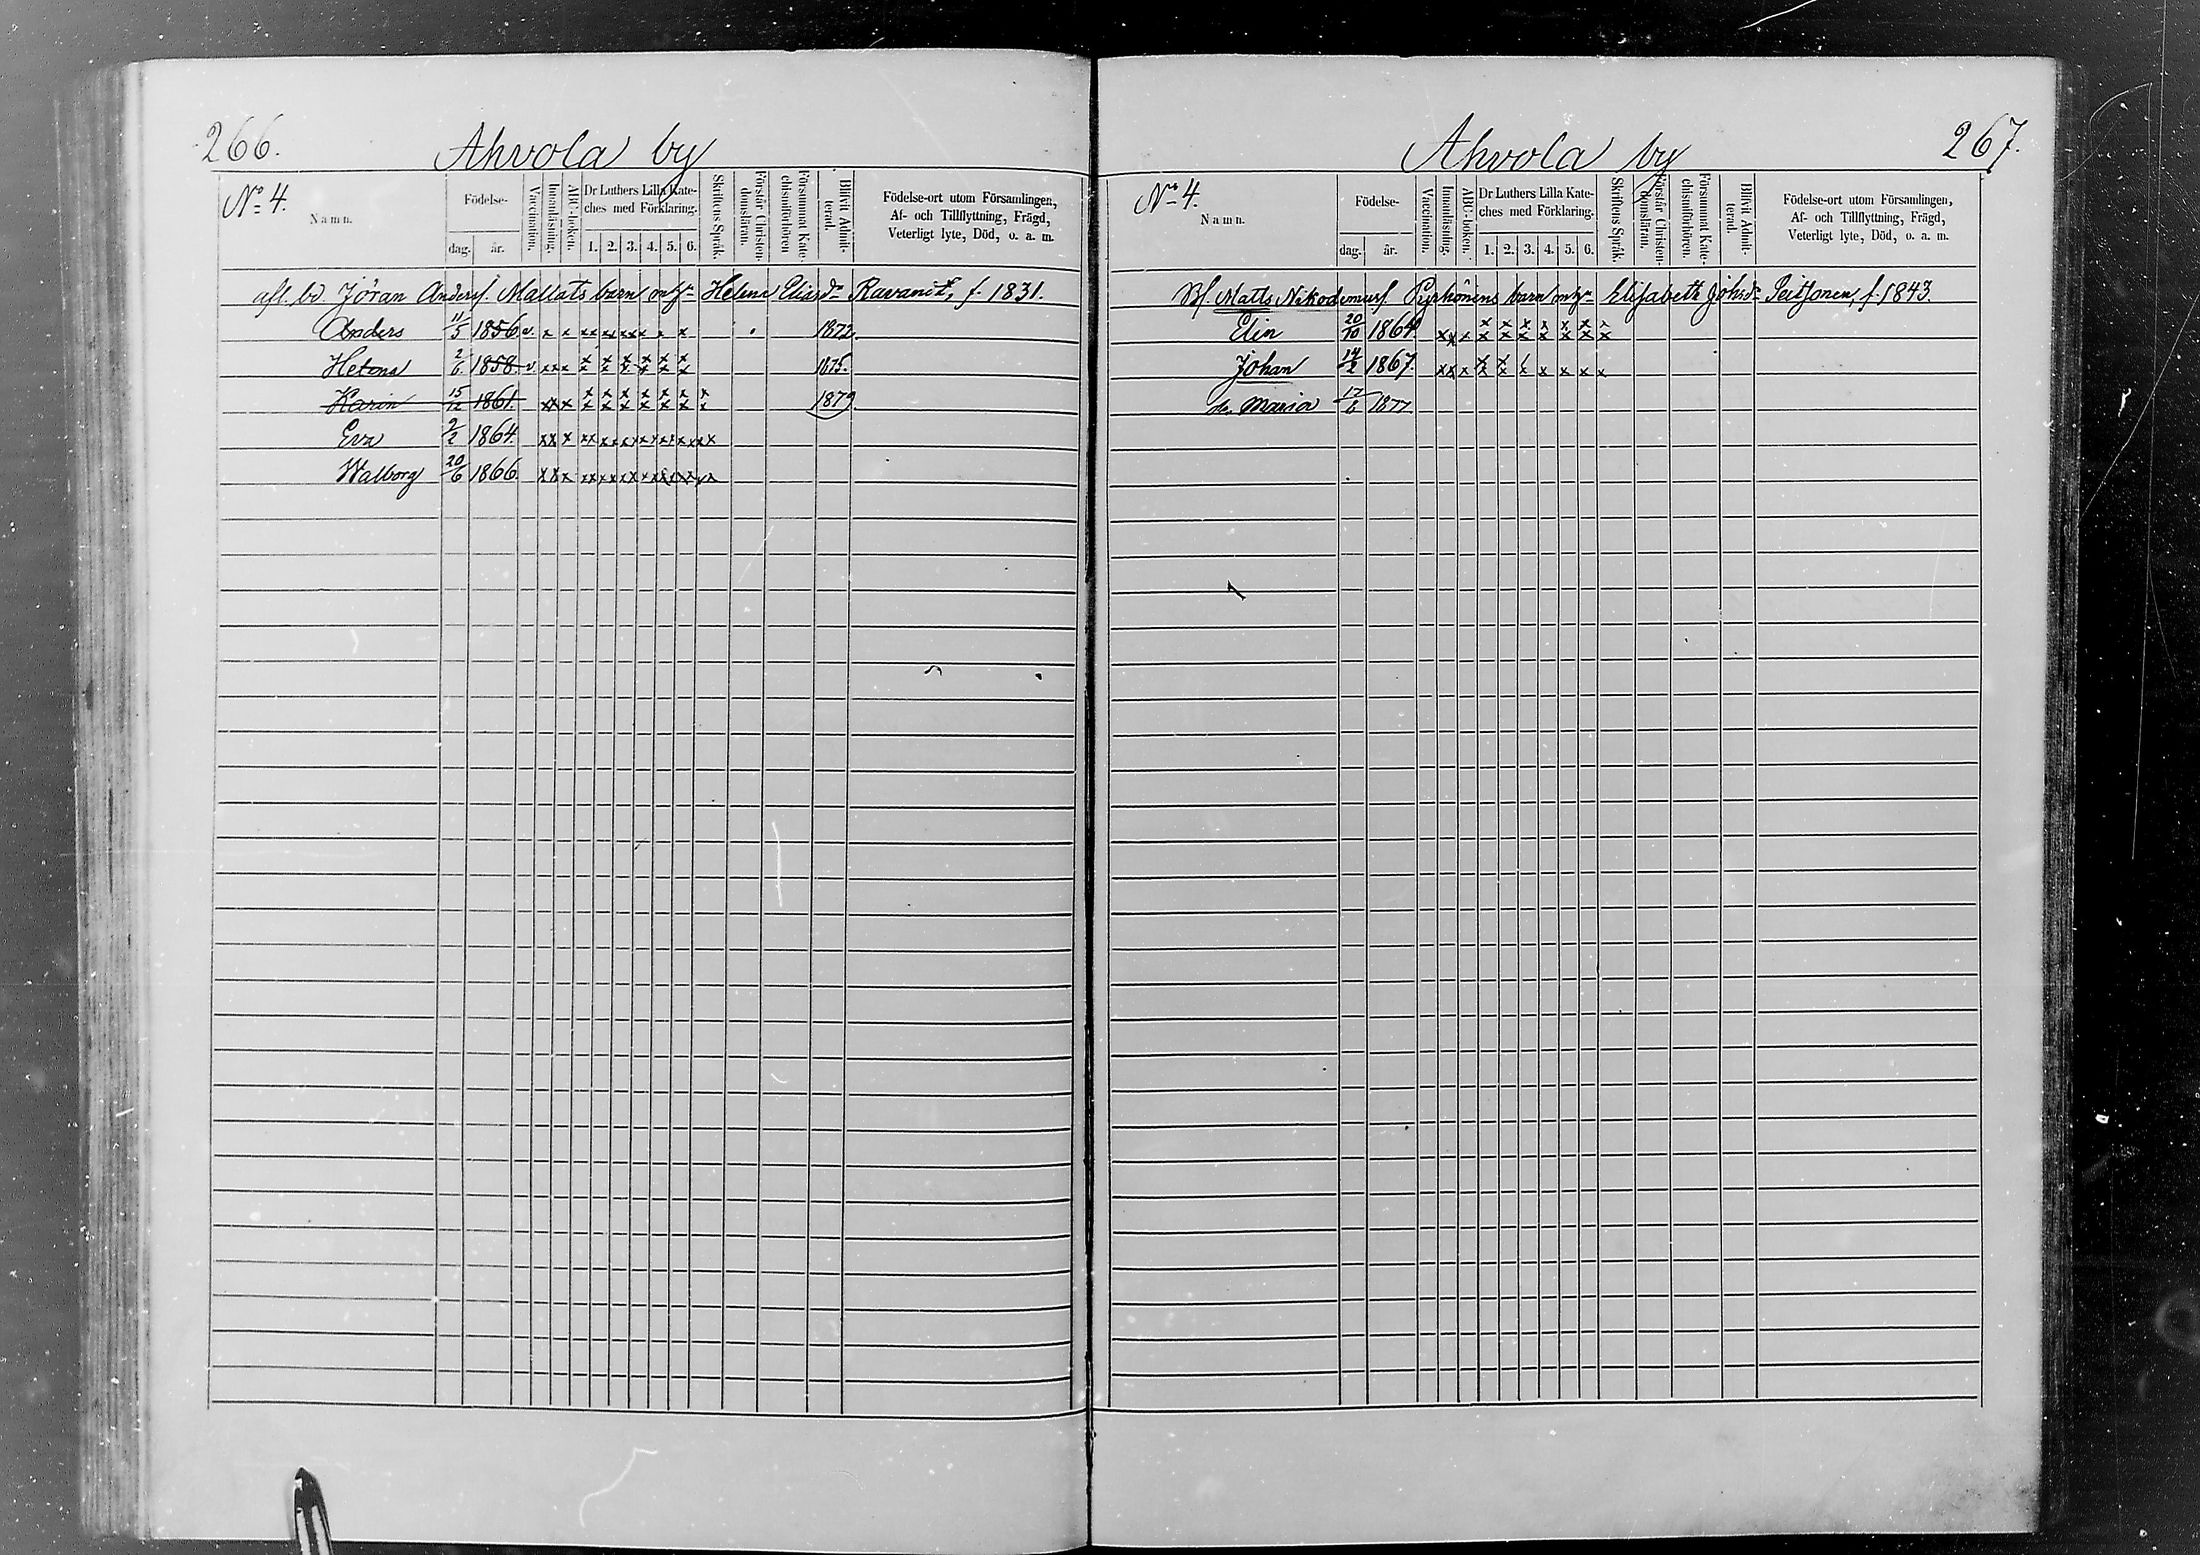 266.
Ahvola by
No 4.
Namn.
Födelse-
dag. år.
Vaccination.
Innanläsning.
ABC-boken.
Dr Luthers Lilla Kate-
ches med Förklaring.
1. 2. 3. 4. 5. 6.
Skriftens Språk.
Förstår Christen-
domsläran.
Försummat Kate-
chismiförhören
Blifvit Admit-
terad.
Födelse-ort utom Församlingen,
Af- och Tillflyttning, Frägd,
Veterligt lyte, Död, o. a. m.
afl. bd. Jöran Anderss. Mallats barn m. Helena Eliasdr Ravandr, f. 1831.
Anders 11/5 1856 v. x x xx xx xxx x x 1872.
Helena 2/6 1858 v. xxx x x x x x x 1875.
Karin 15/12 1861. xx x x x x x x x x 1879.
Eva 2/2 1864 xx x xx xxxxxxxxxxx
Walborg 20/6 1866. xx x xx xxxxxxxxxx
Ahvola by
267.
No 4.
Namn.
Födelse-
dag. år.
Vaccination.
Innanläsning.
ABC-boken.
Dr Luthers Lilla Kate-
ches med Förklaring.
1. 2. 3. 4. 5. 6.
Skriftens Språk.
Förstår Christen-
domsläran.
Försummat Kate-
chismiförhören.
Blifvit Admit-
terad.
Födelse-ort utom Församlingen,
Af- och Tillflyttning, Frägd,
Veterligt lyte, Död, o. a. m.
Matts Nikodemuss. Pyrhönens barn m. Elisabeth Johsdr Peitsonen, f. 1843.
Elin 20/10 1864. xx x x x x x x x x
Johan 14/2 1867. xx x x x x x x x x
Maria 17/6 1877